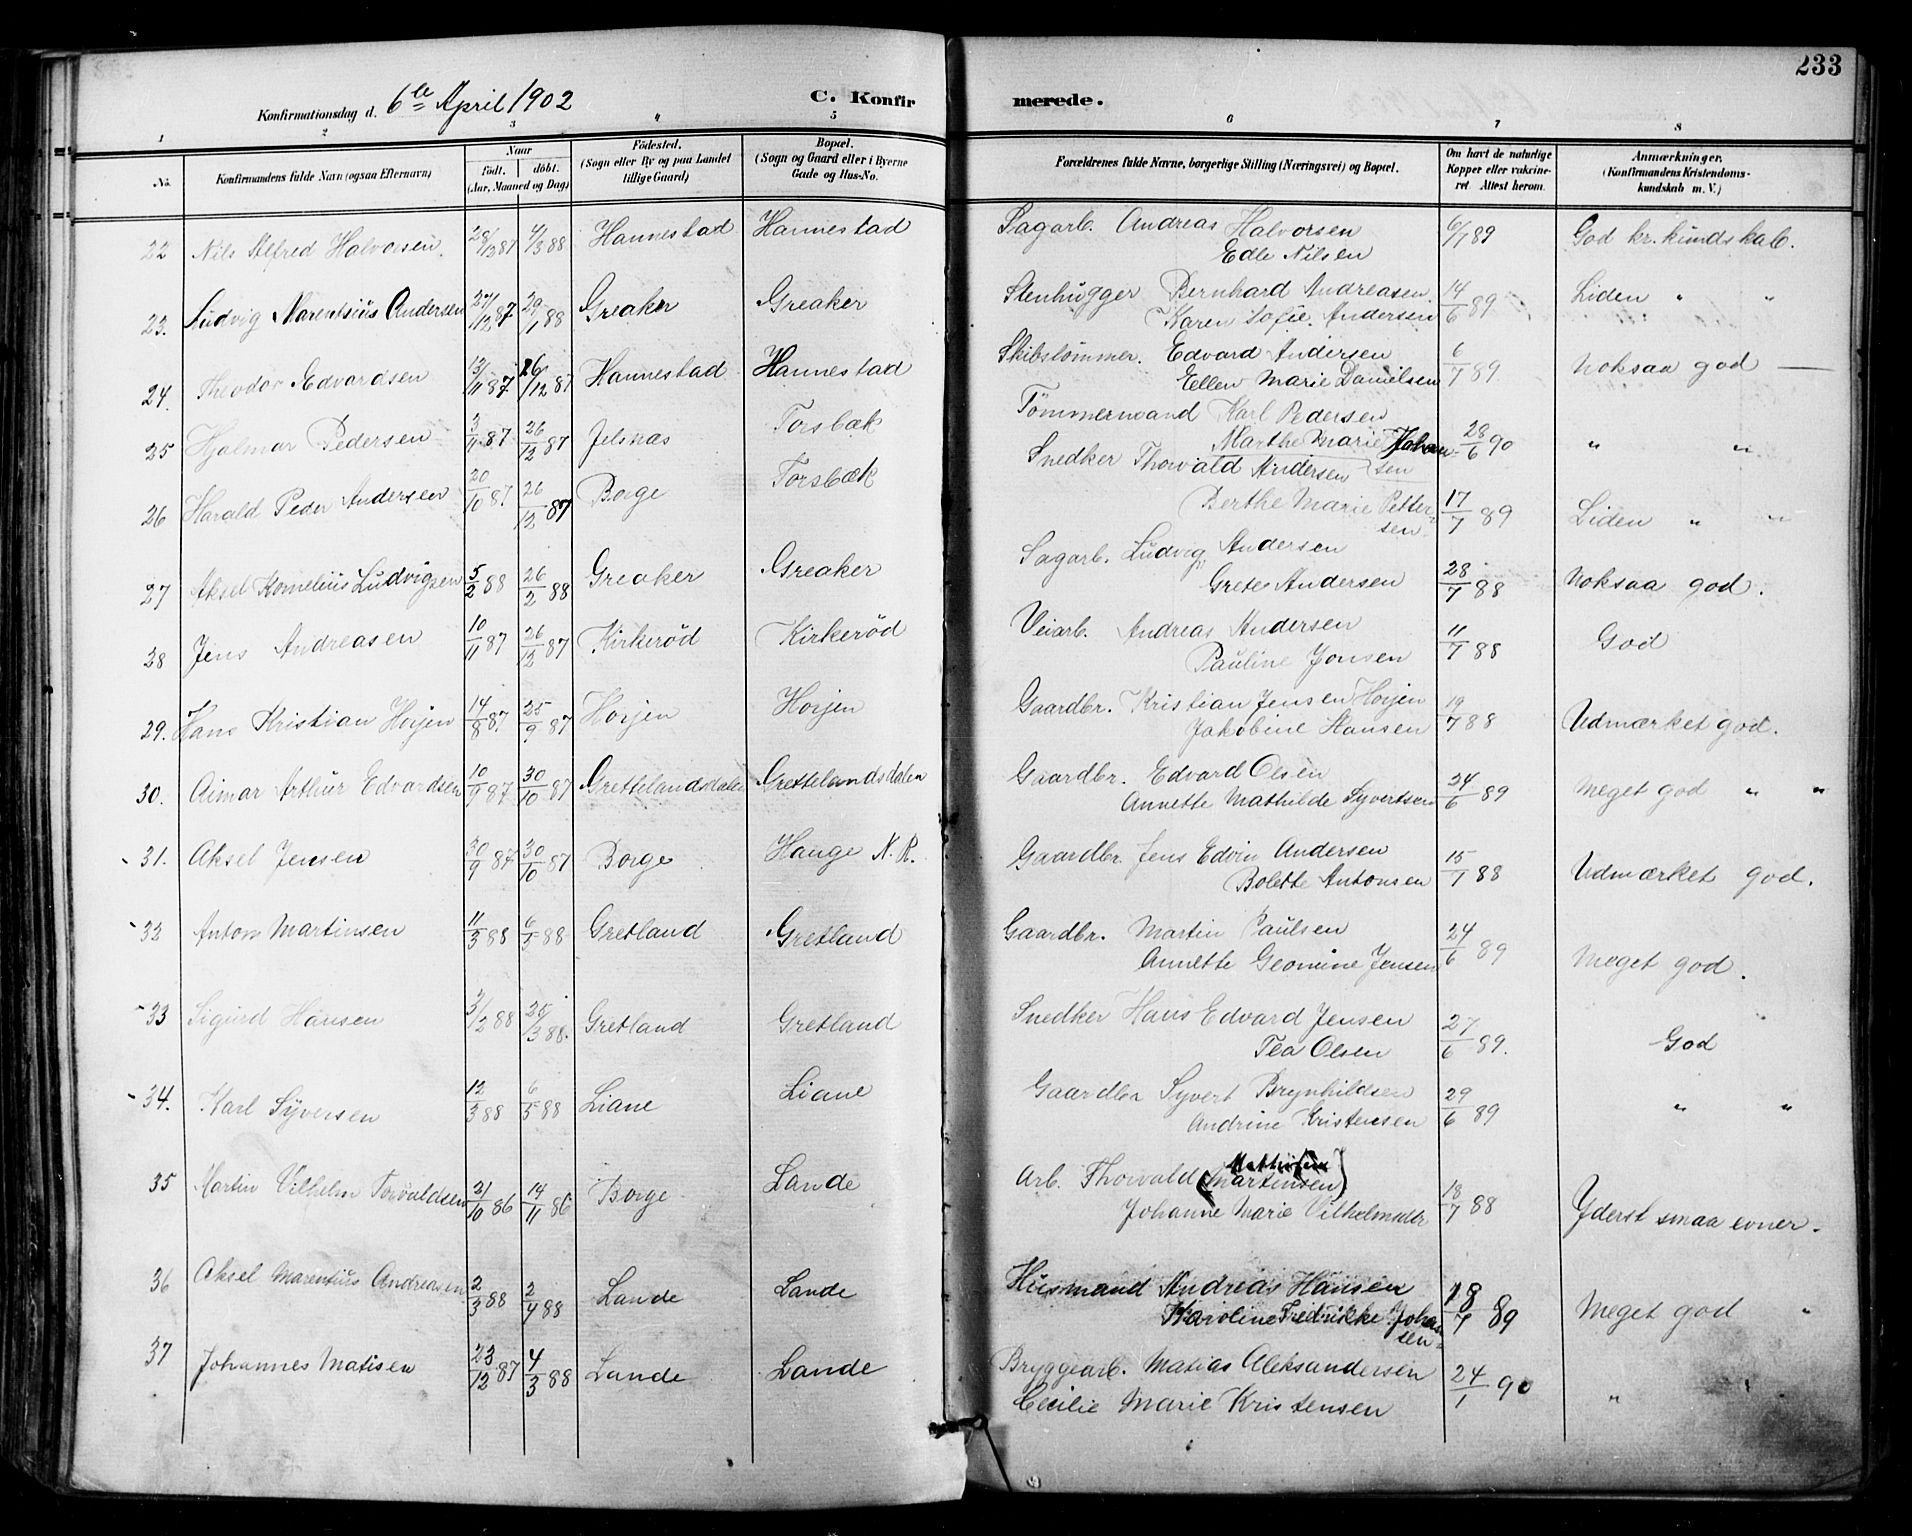 233
Konfirmationsdag d. 6te April 1902
C. Konfirmerede.
1 2 3 4 5 6 7 8
No. Konfirmandens fulde Navn (ogsaa Efternavn) Naar født. døbt. (Aar, Maaned og Dag) Födested. (Sogn eller By og paa Landet tillige Gaard) Bopæl. (Sogn og Gaard eller i Byerne Gade og Hus-No. Forældrenes fulde Navne, borgerlige Stilling (Næringsvei) og Bopæl. Om havt de naturlige Kopper eller vakcineret. Attest herom. Anmærkninger. (Konfirmandens Kristendomskundskab m. V.)
22 Nils Alfred Halvorsen. 28/12 87 4/3 88 Hannestad Hannestad Sagarb. Andreas Halvorsen 6/7 89 God kr. kundskab.
Edle Nilsen
23. Ludvig Marentius Andersen 27/12 87 29/1 88 Greaker Greaker Stenhugger Bernhard Andreasen 14/6 89 Liden " "
Karen Sofie Andersen
24. Theodor Edvardsen 13/11 87 26/12 87 Hannestad Hannestad Skibstømmer. Edvard Andersen 6/7 89. Noksaa god —
Ellen Marie Danielsen
25 Hjalmar Pedersen 3/11 87 26/12 87 Jelsnæs Torsbæk Tömmermand Karl Pedersen 28/6 90 " "
Marthe Marie Johansen
26 Harald Peder Andersen 20/10 87. 26/12 87 Borge Torsbæk Snedker Thorvald Andersen 17/7 89 Liden " "
Berthe Marie Pettersen
27 Aksel Kornelius Ludvigsen 5/2 88 26/2 88 Greaker Greaker Sagarb. Ludvig Andersen 28/7 88 Noksaa god.
Grete Andersen
28 Jens Andreasen 10/11 87 26/12 87 Kirkerød Kirkerød Veiarb. Andreas Andersen 11/7 88 God
Pauline Jonsen
29. Hans Kristian Hoijen 14/8 87. 25/9 87 Hoijen Hoijen Gaardbr. Kristian Jensen Hoijen 19/7 88 Udmærket god.
Jakobine Hansen
30. Aimar Arthur Edvardsen 10/9 87 30/10 87 Grettelandsdalen Grettelandsdalen Gaardbr. Edvard Olsen 24/6 89 Meget god " "
Annette Mathilde Syvertsen
31. Aksel Jensen 30/9 87 30/10 87 Borge Hauge N. R. Gaardbr. Jens Edvin Andersen 15/1 88 Udmærket god.
Bolette Antonsen
32 Anton Martinsen 11/3 88 6/5 88 Gretland Gretland Gaardbr. Martin Paulsen 24/6 89 Meget god.
Annette Geomine Jensen
33 Sigurd Hansen 3/2 88 25/3 88. Gretland Gretland Snedker Hans Edvard Jensen 27/6 89. God
Tea Olsen
34. Karl Syversen 12/3 88 6/5 88 Liane Liane Gaardbr Syvert Brynhildsen 29/6 89 " "
Andrine Kristensen
35 Martin Vilhelm Torvaldsen 31/10 86 14/11 86 Borge Lande Arb. Thorvald (Martinsen) Mathisen 18/7 88 Yderst smaa evner.
Johanne Marie Vilhelmsdtr
36 Aksel Marentius Andreasen 2/3 88 2/4 88 Lande Lande Husmand Andreas Hansen 18/7 89 Meget god "
Karoline Fredrikke Johansen
37 Johannes Matisen 23/12 87 4/3 88 Lande Lande Bryggearb. Matias Aleksandersen 24/1 90 " "
Cecilie Marie Kristensen